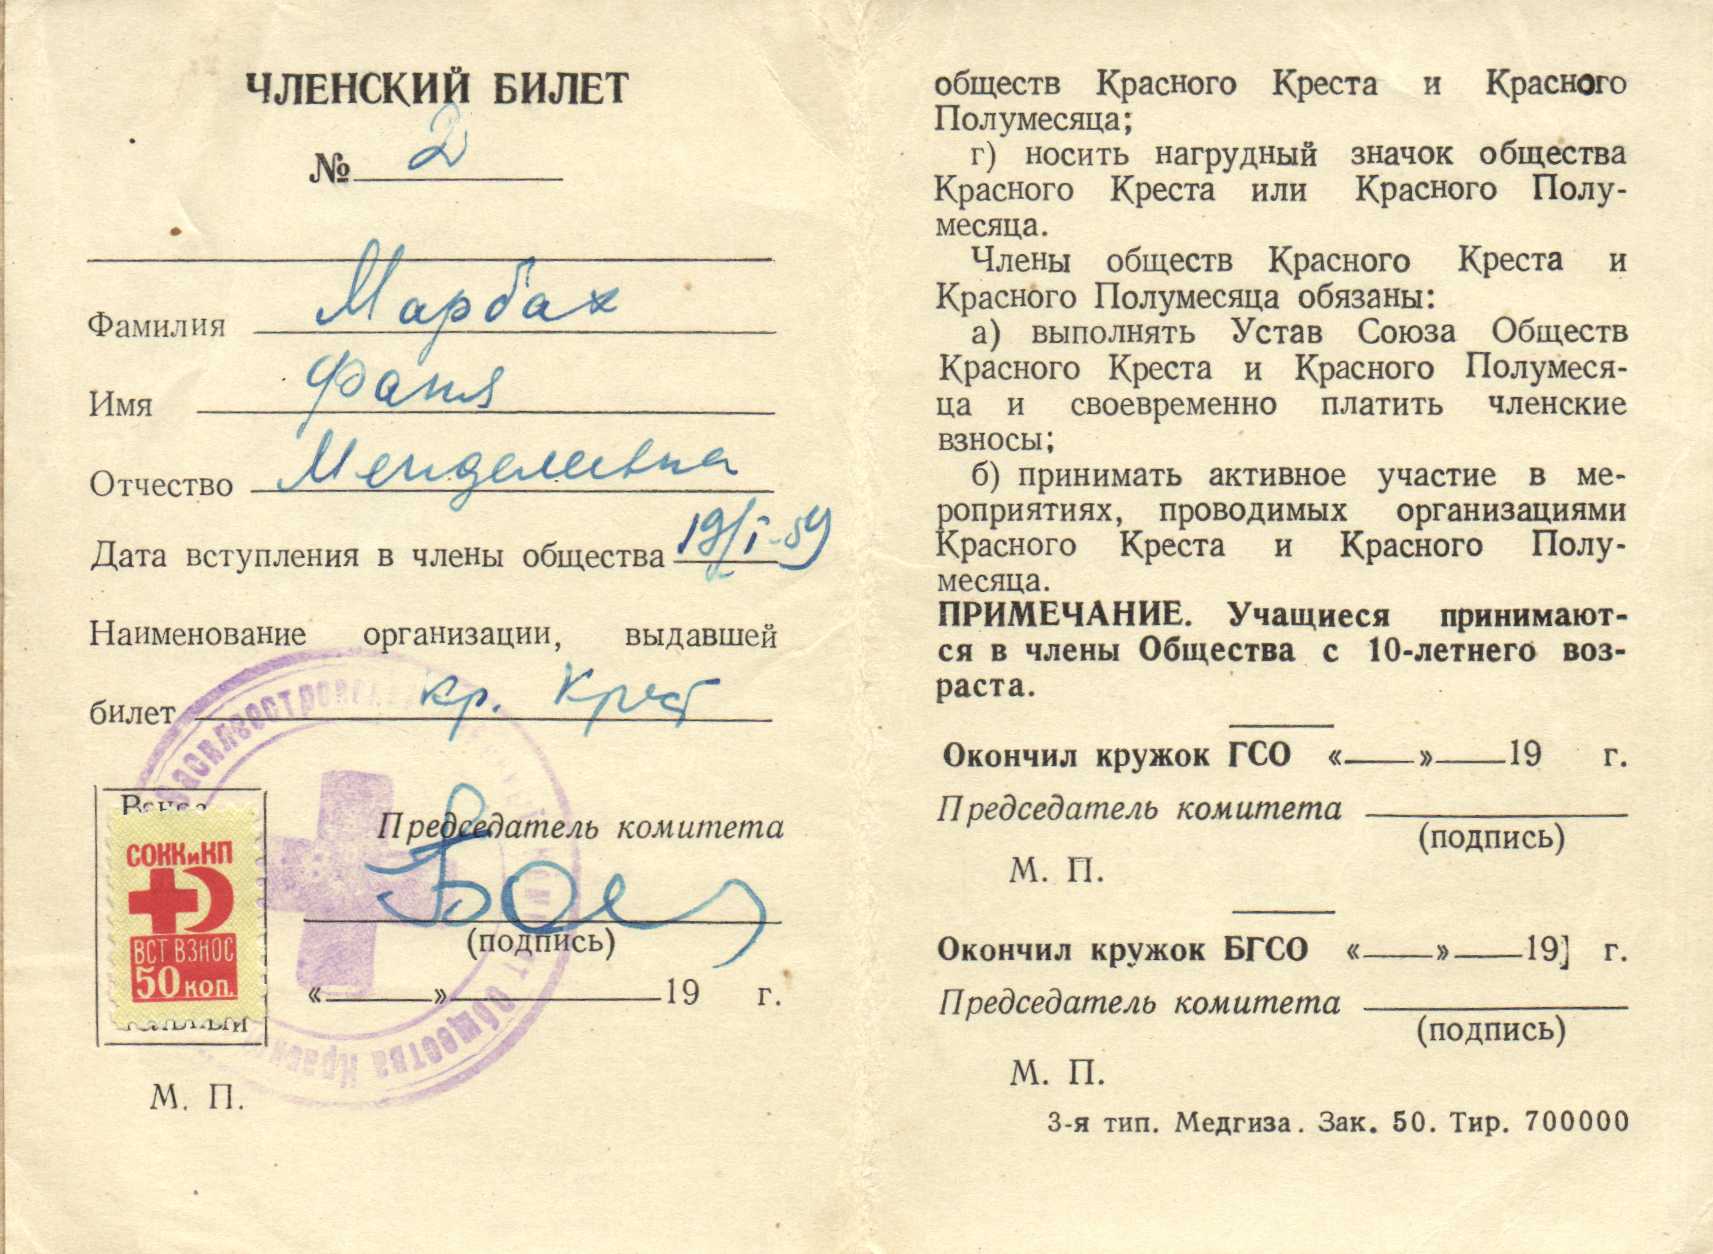 ЧЛЕНСКИЙ БИЛЕТ
№ 2
Фамилия Марбах
Имя Фаня
Отчество Менделевна
Дата вступления в члены общества 19/I-59
Наименование организации, выдавшей
билет кр. Крест
Председатель комитета
(подпись)
«  »  19  г.
СОКК и КП
ВСТ ВЗНОС
50 коп.
М. П.
обществ Красного Креста и Красного
Полумесяца;
г) носить нагрудный значок общества
Красного Креста или Красного Полу-
месяца.
Члены обществ Красного Креста и
Красного Полумесяца обязаны:
а) выполнять Устав Союза Обществ
Красного Креста и Красного Полумеся-
ца и своевременно платить членские
взносы;
б) принимать активное участие в ме-
роприятиях, проводимых организациями
Красного Креста и Красного Полу-
месяца.
ПРИМЕЧАНИЕ. Учащиеся принимают-
ся в члены Общества с 10-летнего воз-
раста.
Окончил кружок ГСО «  »  19  г.
Председатель комитета
(подпись)
М. П.
Окончил кружок БГСО «  »  19  г.
Председатель комитета
(подпись)
М. П.
3-я тип. Медгиза. Зак. 50. Тир. 700000
Общества